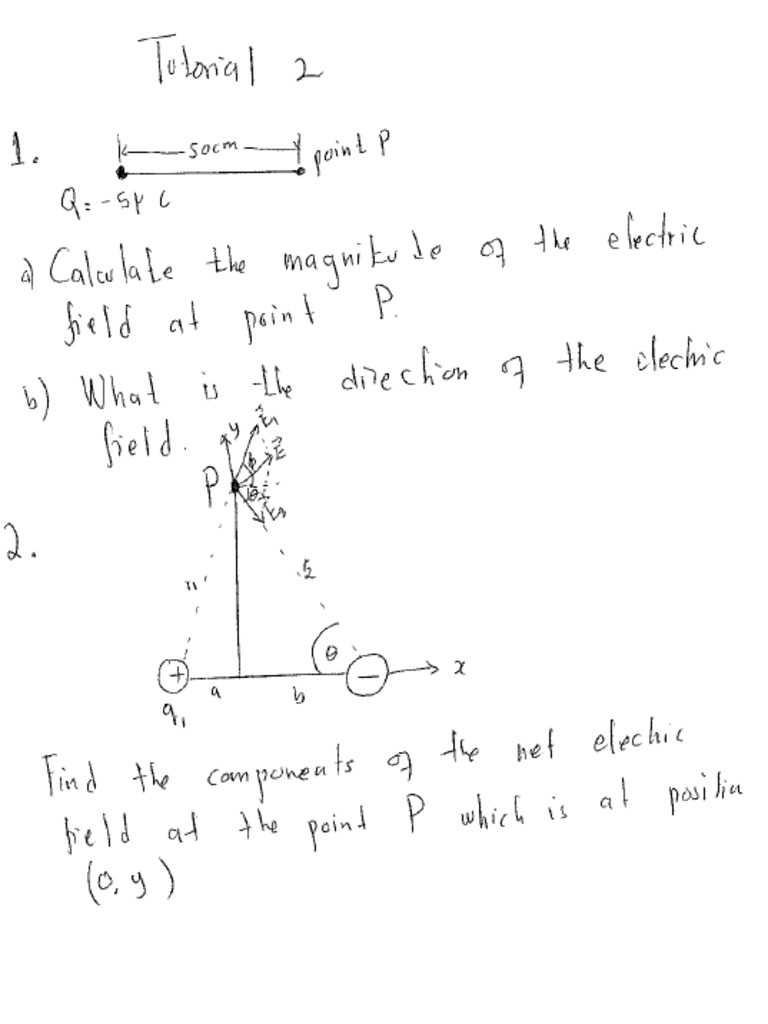 Tutorial 2
1.
50cm
point P
Q = -5μ C
a) Calculate the magnitude of the electric
field at point P.
b) What is the direction of the electric
field.
y
E₁
E
P
φ
θ
E₂
2.
r₁
r₂
θ
+
a
b
−
x
q₁
Find the components of the net electric
field at the point P which is at position
(0, y)